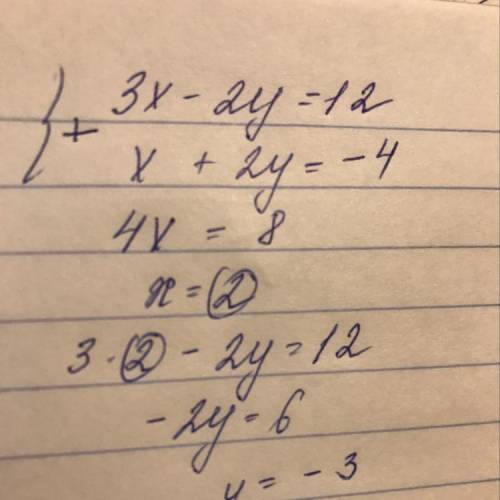 3x - 2y = 12
+ x + 2y = -4
4x = 8
x = 2
3 · 2 - 2y = 12
-2y = 6
y = -3